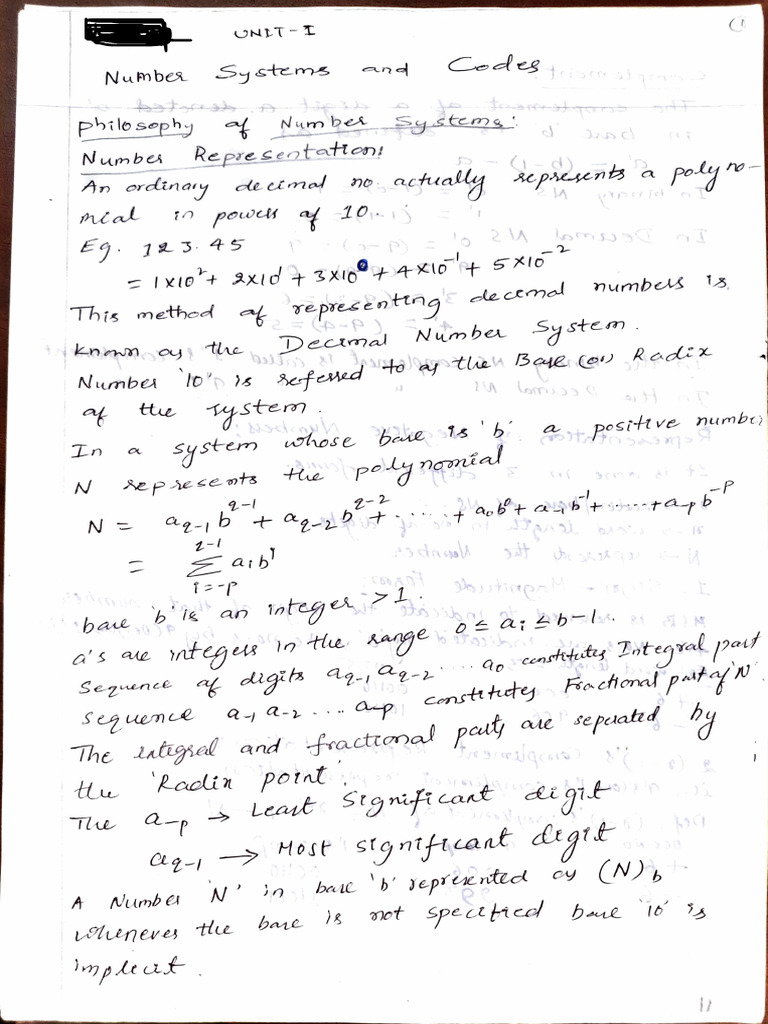 UNIT-I
(1
Number Systems and Codes
Philosophy of Number Systems:
Number Representation:
An ordinary decimal no. actually represents a polyno-
mial in powers of 10.
Eg. 123.45
= 1×10² + 2×10¹ + 3×10⁰ + 4×10⁻¹ + 5×10⁻²
This method of representing decimal numbers is
known as the Decimal Number System.
Number '10' is referred to as the Base (or) Radix
of the system.
In a system whose base is 'b' a positive number
N represents the polynomial
N = a_{q-1} b^{q-1} + a_{q-2} b^{q-2} + ...... + a₀b⁰ + a₋₁b⁻¹ + ..... + a₋ₚ b^{-P}
= Σ_{i=-p}^{q-1} aᵢbⁱ
base 'b' is an integer > 1.
a's are integers in the range 0 ≤ aᵢ ≤ b-1.
Sequence of digits a_{q-1} a_{q-2} .... a₀ constitutes Integral part
sequence a₋₁ a₋₂ .... a₋ₚ constitutes Fractional part of 'N'
The integral and fractional parts are seperated by
the 'Radix point'.
The a₋ₚ → Least Significant digit
a_{q-1} → Most significant digit
A Number 'N' in base 'b' represented as (N)_b
whenever the base is not specified base '10' is
implicit.